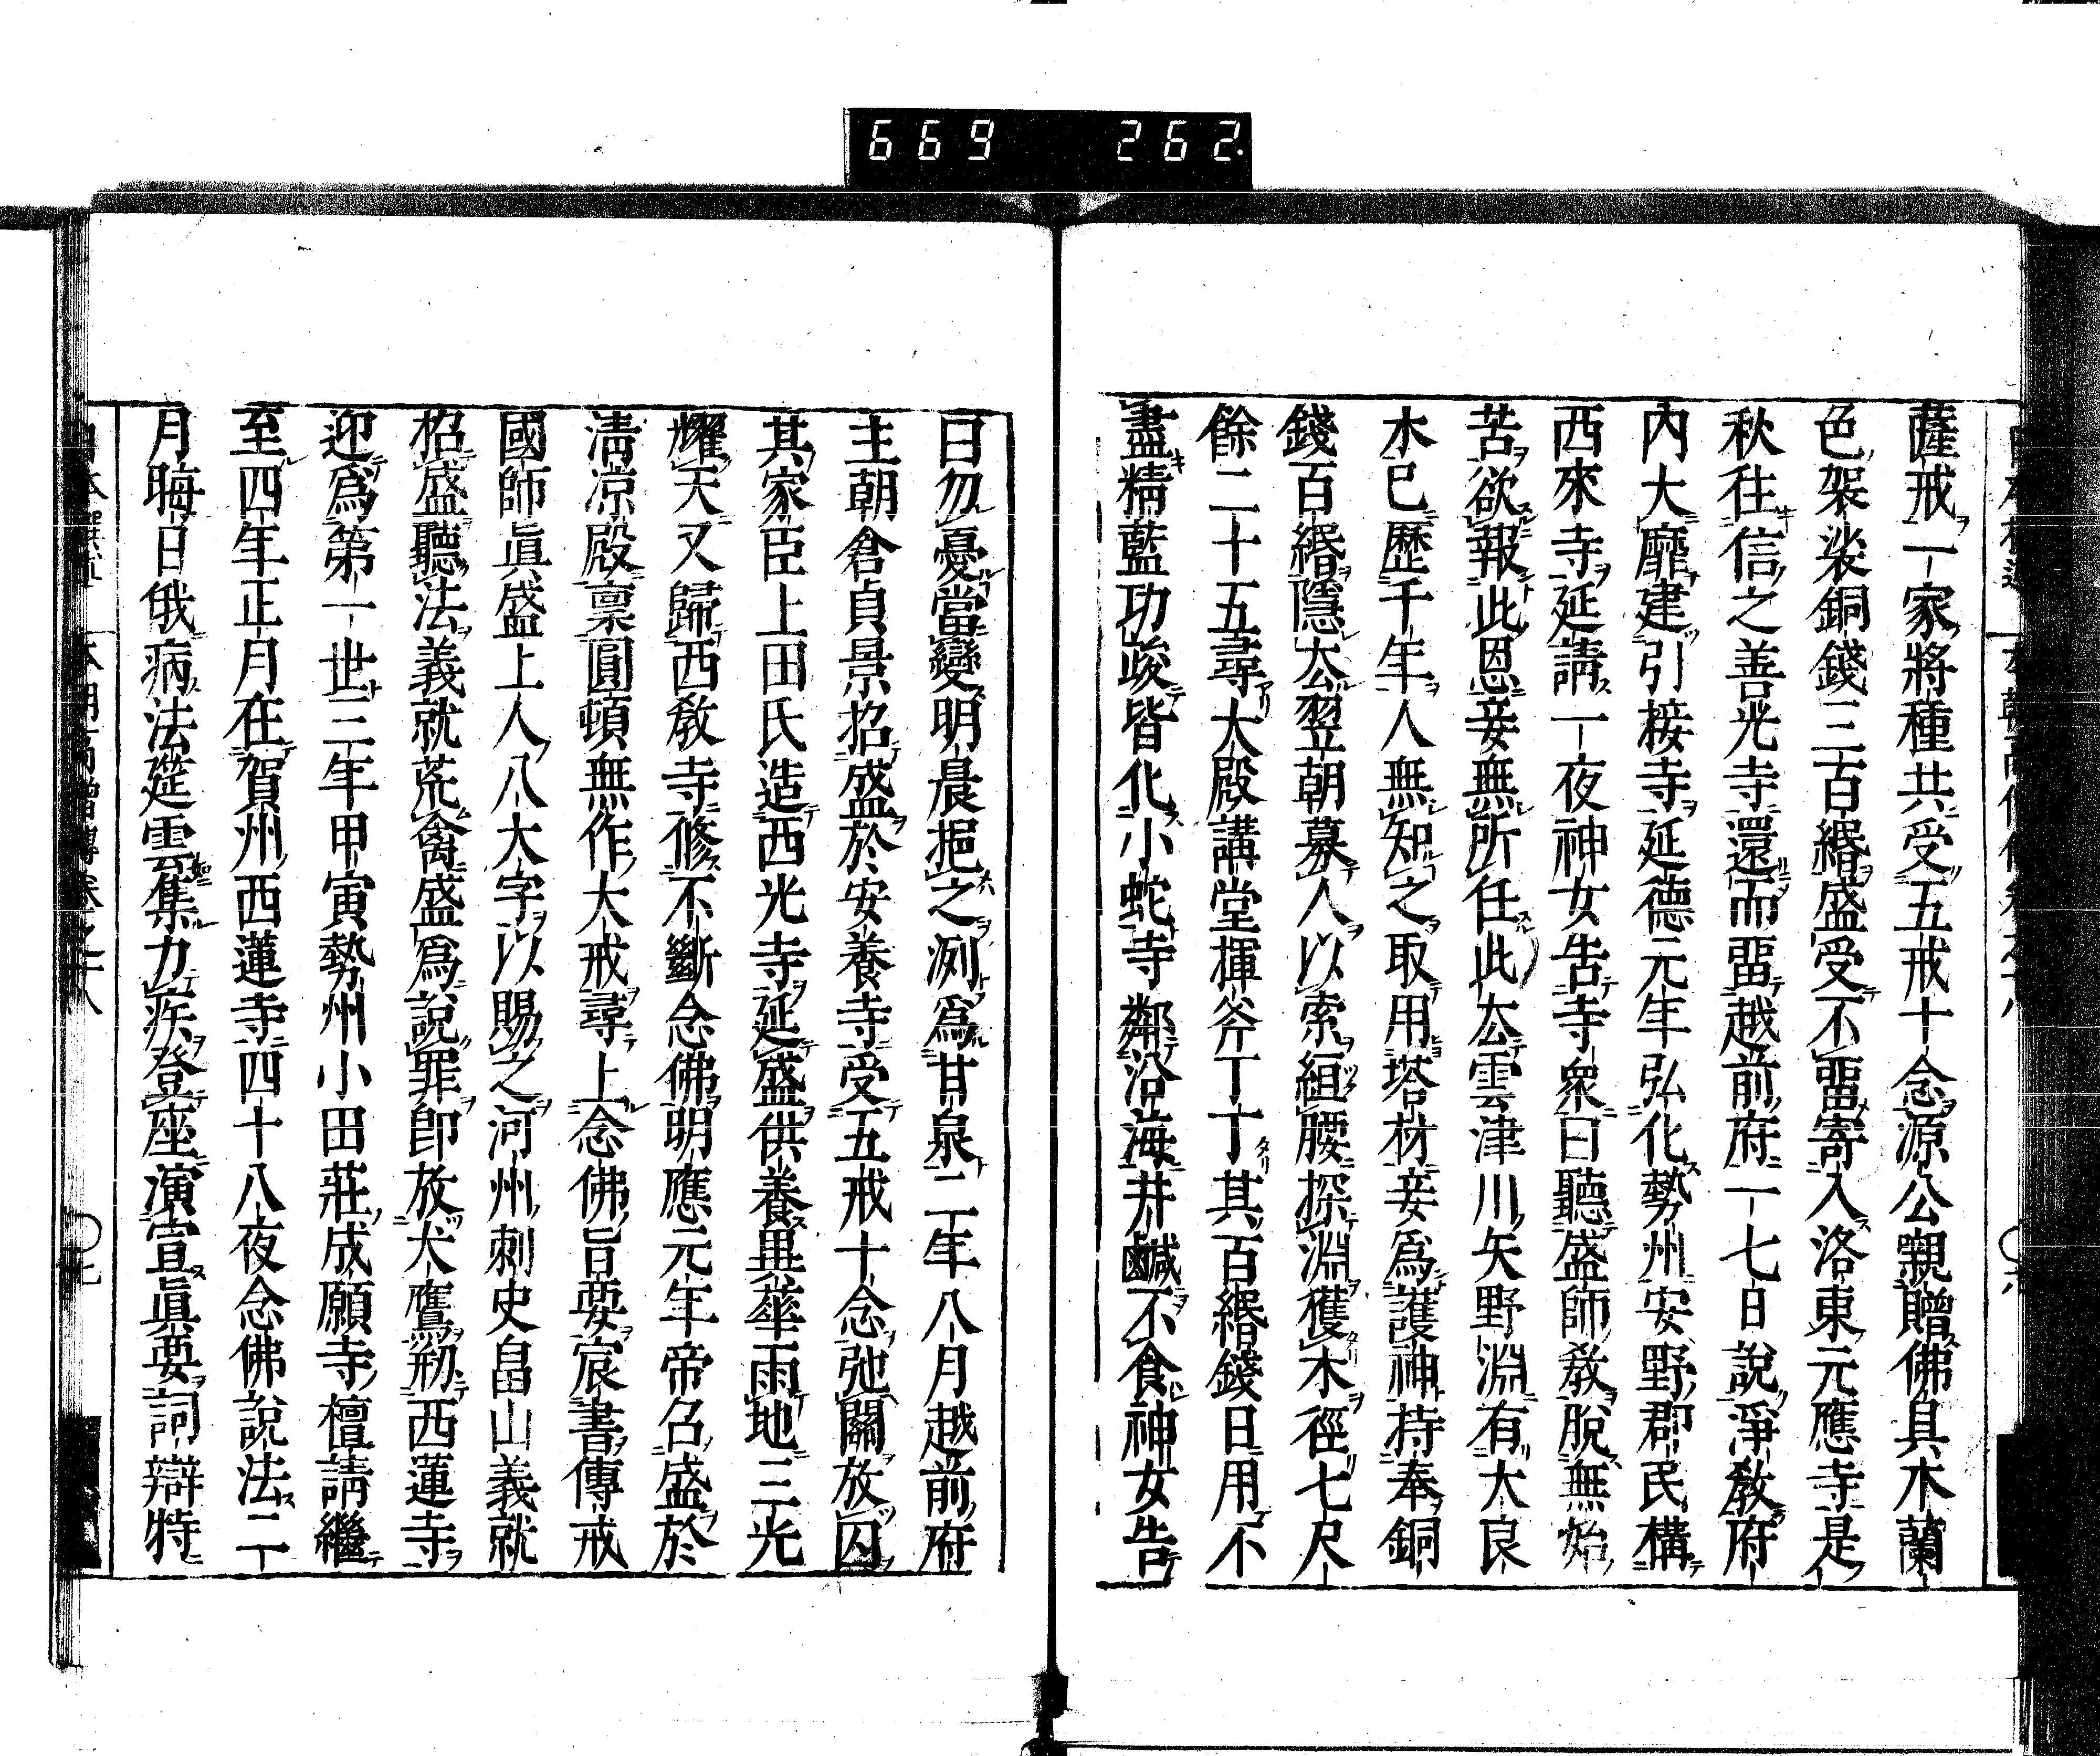 669 262
薩戒一家將種共受五戒十念源公親贈佛具木蘭
色袈裟銅錢三百緡盛受不畱寄入洛東元應寺是
秋往信之善光寺還而畱越前府一七日說淨教府
內大靡建引接寺延德元年弘化勢州安野郡民構
西來寺延請一夜神女告寺衆曰聽盛師教脫無始
苦欲報此恩妾無所任此去雲津川矢野淵有大良
木已歷千年人無知之取用塔材妾爲護神持奉銅
錢百緡隱去翌朝募人以索絙腰探淵獲木徑七尺
餘二十五尋大殿講堂揮斧丁丁其百緡錢日用不
盡精藍功峻皆化小蛇寺鄰沿海井鹹不食神女告
曰勿憂當變明晨挹之洌爲甘泉二年八月越前府
主朝倉貞景招盛於安養寺受五戒十念弛關放囚
其家臣上田氏造西光寺延盛供養異華雨地三光
耀天又歸西教寺修不斷念佛明應元年帝召盛於
淸凉殿稟圓頓無作大戒尋上念佛旨要宸書傳戒
國師眞盛上人八大字以賜之河州刺史畠山義就
招盛聽法義就荒禽盛爲說罪卽放犬鷹剏西蓮寺
迎爲第一世三年甲寅勢州小田莊成願寺檀請繼
至四年正月在賀州西蓮寺四十八夜念佛說法二
月晦日俄病法筵雲集力疾登座演宣眞要詞辯特